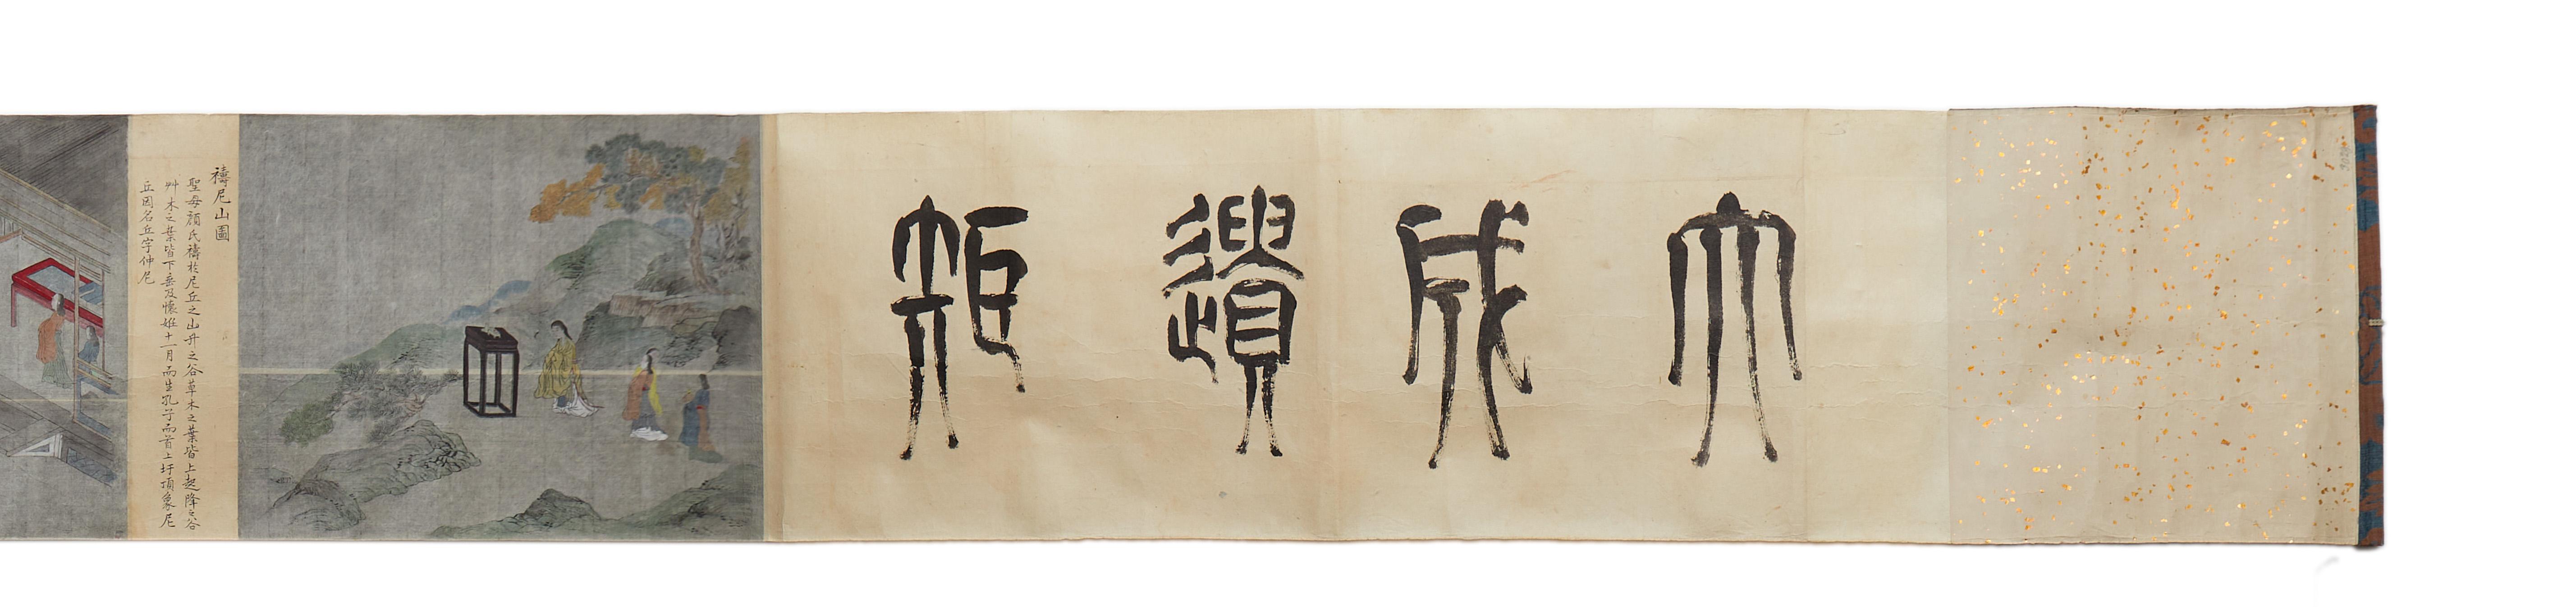 大成遺矩
禱尼山圖
聖母顏氏禱於尼丘之山升之谷草木之葉皆上起降之谷
艸木之葉皆下垂及懷姙十一月而生孔子而首上圩頂象尼
丘因名丘字仲尼